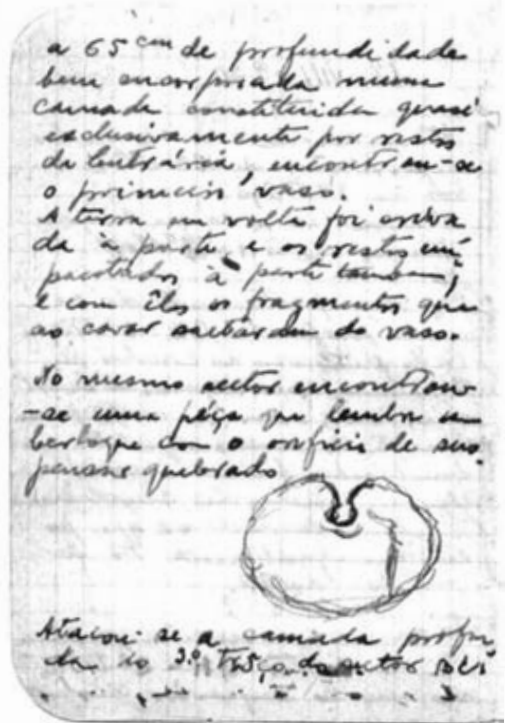 a 65 cm de profundidade
bem encorporada numa
camada constituida quasi
exclusivamente por restos
de lutrária, encontrou-se
o primeiro vaso.
A terra em volta foi criva
da à parte e os restos em
pacotados à parte tambem,
e com êles os fragmentos que
ao cavar saltaram do vaso.
No mesmo sector encontrou-
-se uma péça que lembra um
berloque com o orificio de sus
pensão quebrado
Atacou-se a camada profun
da do 3.º do sector